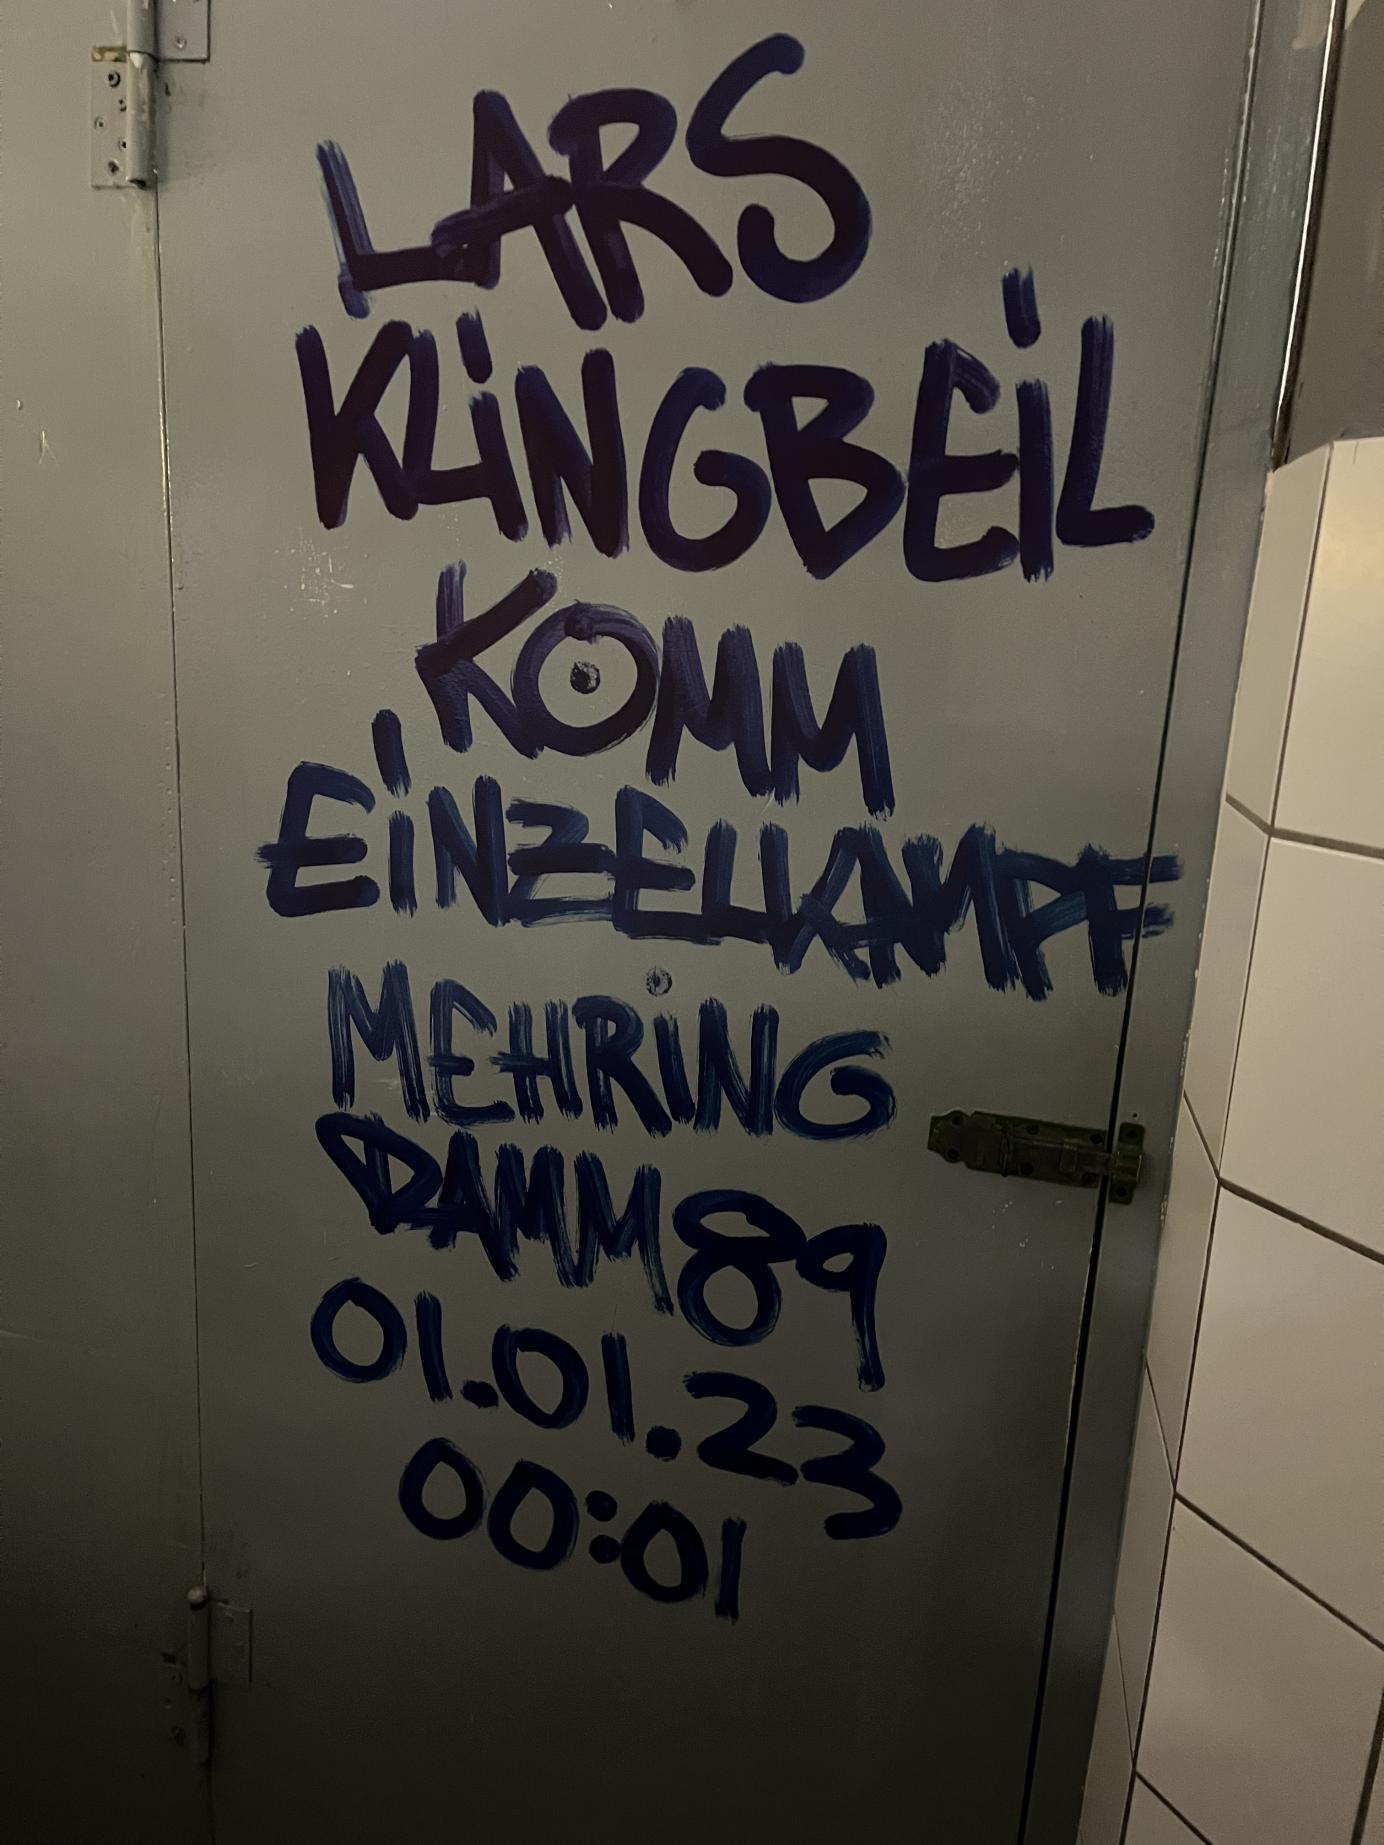 LARS
KLiNGBEiL
KOMM
EiNZELKAMPF
MEHRiNG
DAMM 89
01.01.23
00:01